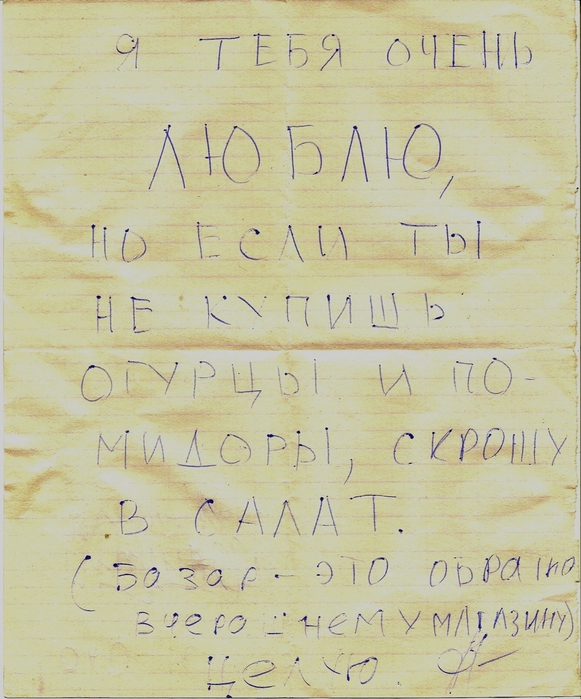 Я ТЕБЯ ОЧЕНЬ
ЛЮБЛЮ,
НО ЕСЛИ ТЫ
НЕ КУПИШЬ
ОГУРЦЫ И ПО-
МИДОРЫ, СКРОШУ
В САЛАТ.
(БАЗАР - ЭТО ОБРАТНО
ВЧЕРАШНЕМУ МАГАЗИНУ)
ЦЕЛУЮ.